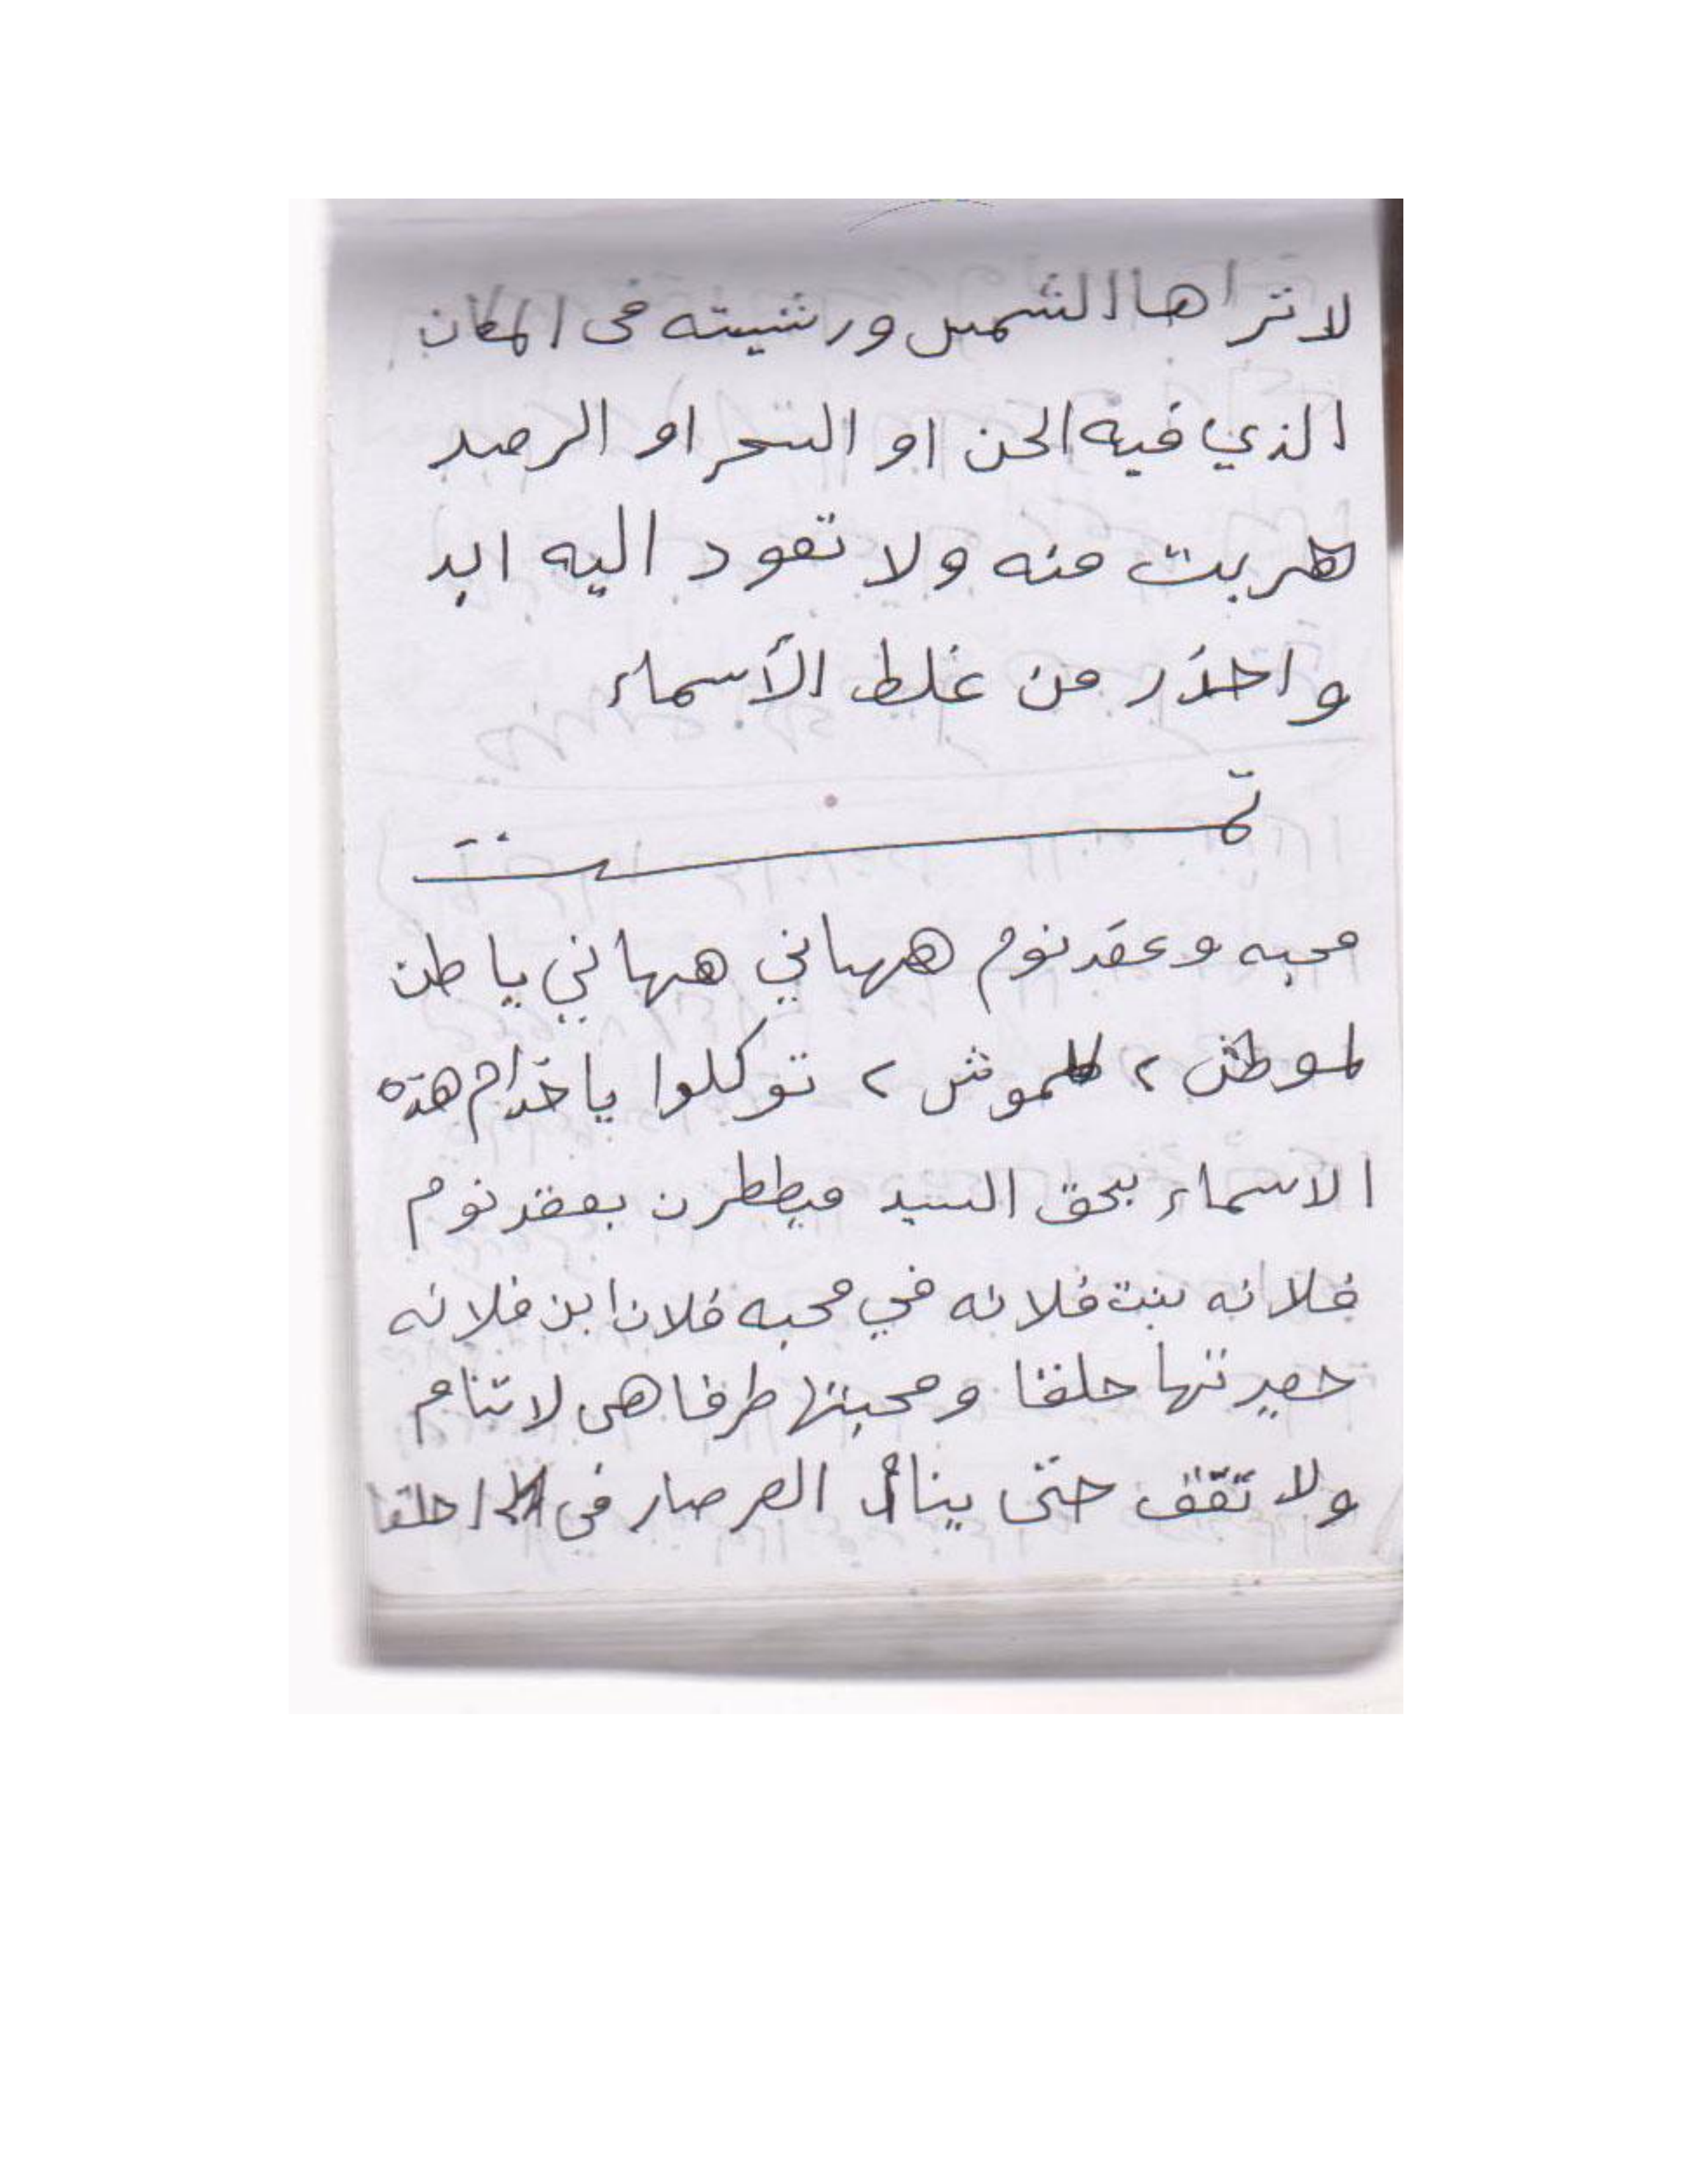 لا تراها الشمس ورشيته فى المكان
الذي فيه الجن او السحر او الرصد
هربت منه ولا تعود اليه ابد
واحذر من غلط الأسماء
تمت
محبه وعقد نوم ههاني ههاني يا طن
لموطش ٢ كلموش ٢ توكلوا يا خدام هذه
الاسماء بحق السيد ميططرن بعقد نوم
فلانه بنت فلانه في محبه فلان ابن فلانه
صيرتها حلقا ومحبتها طرفا هى لا تنام
ولا تقف حتى ينام الصرصار فى